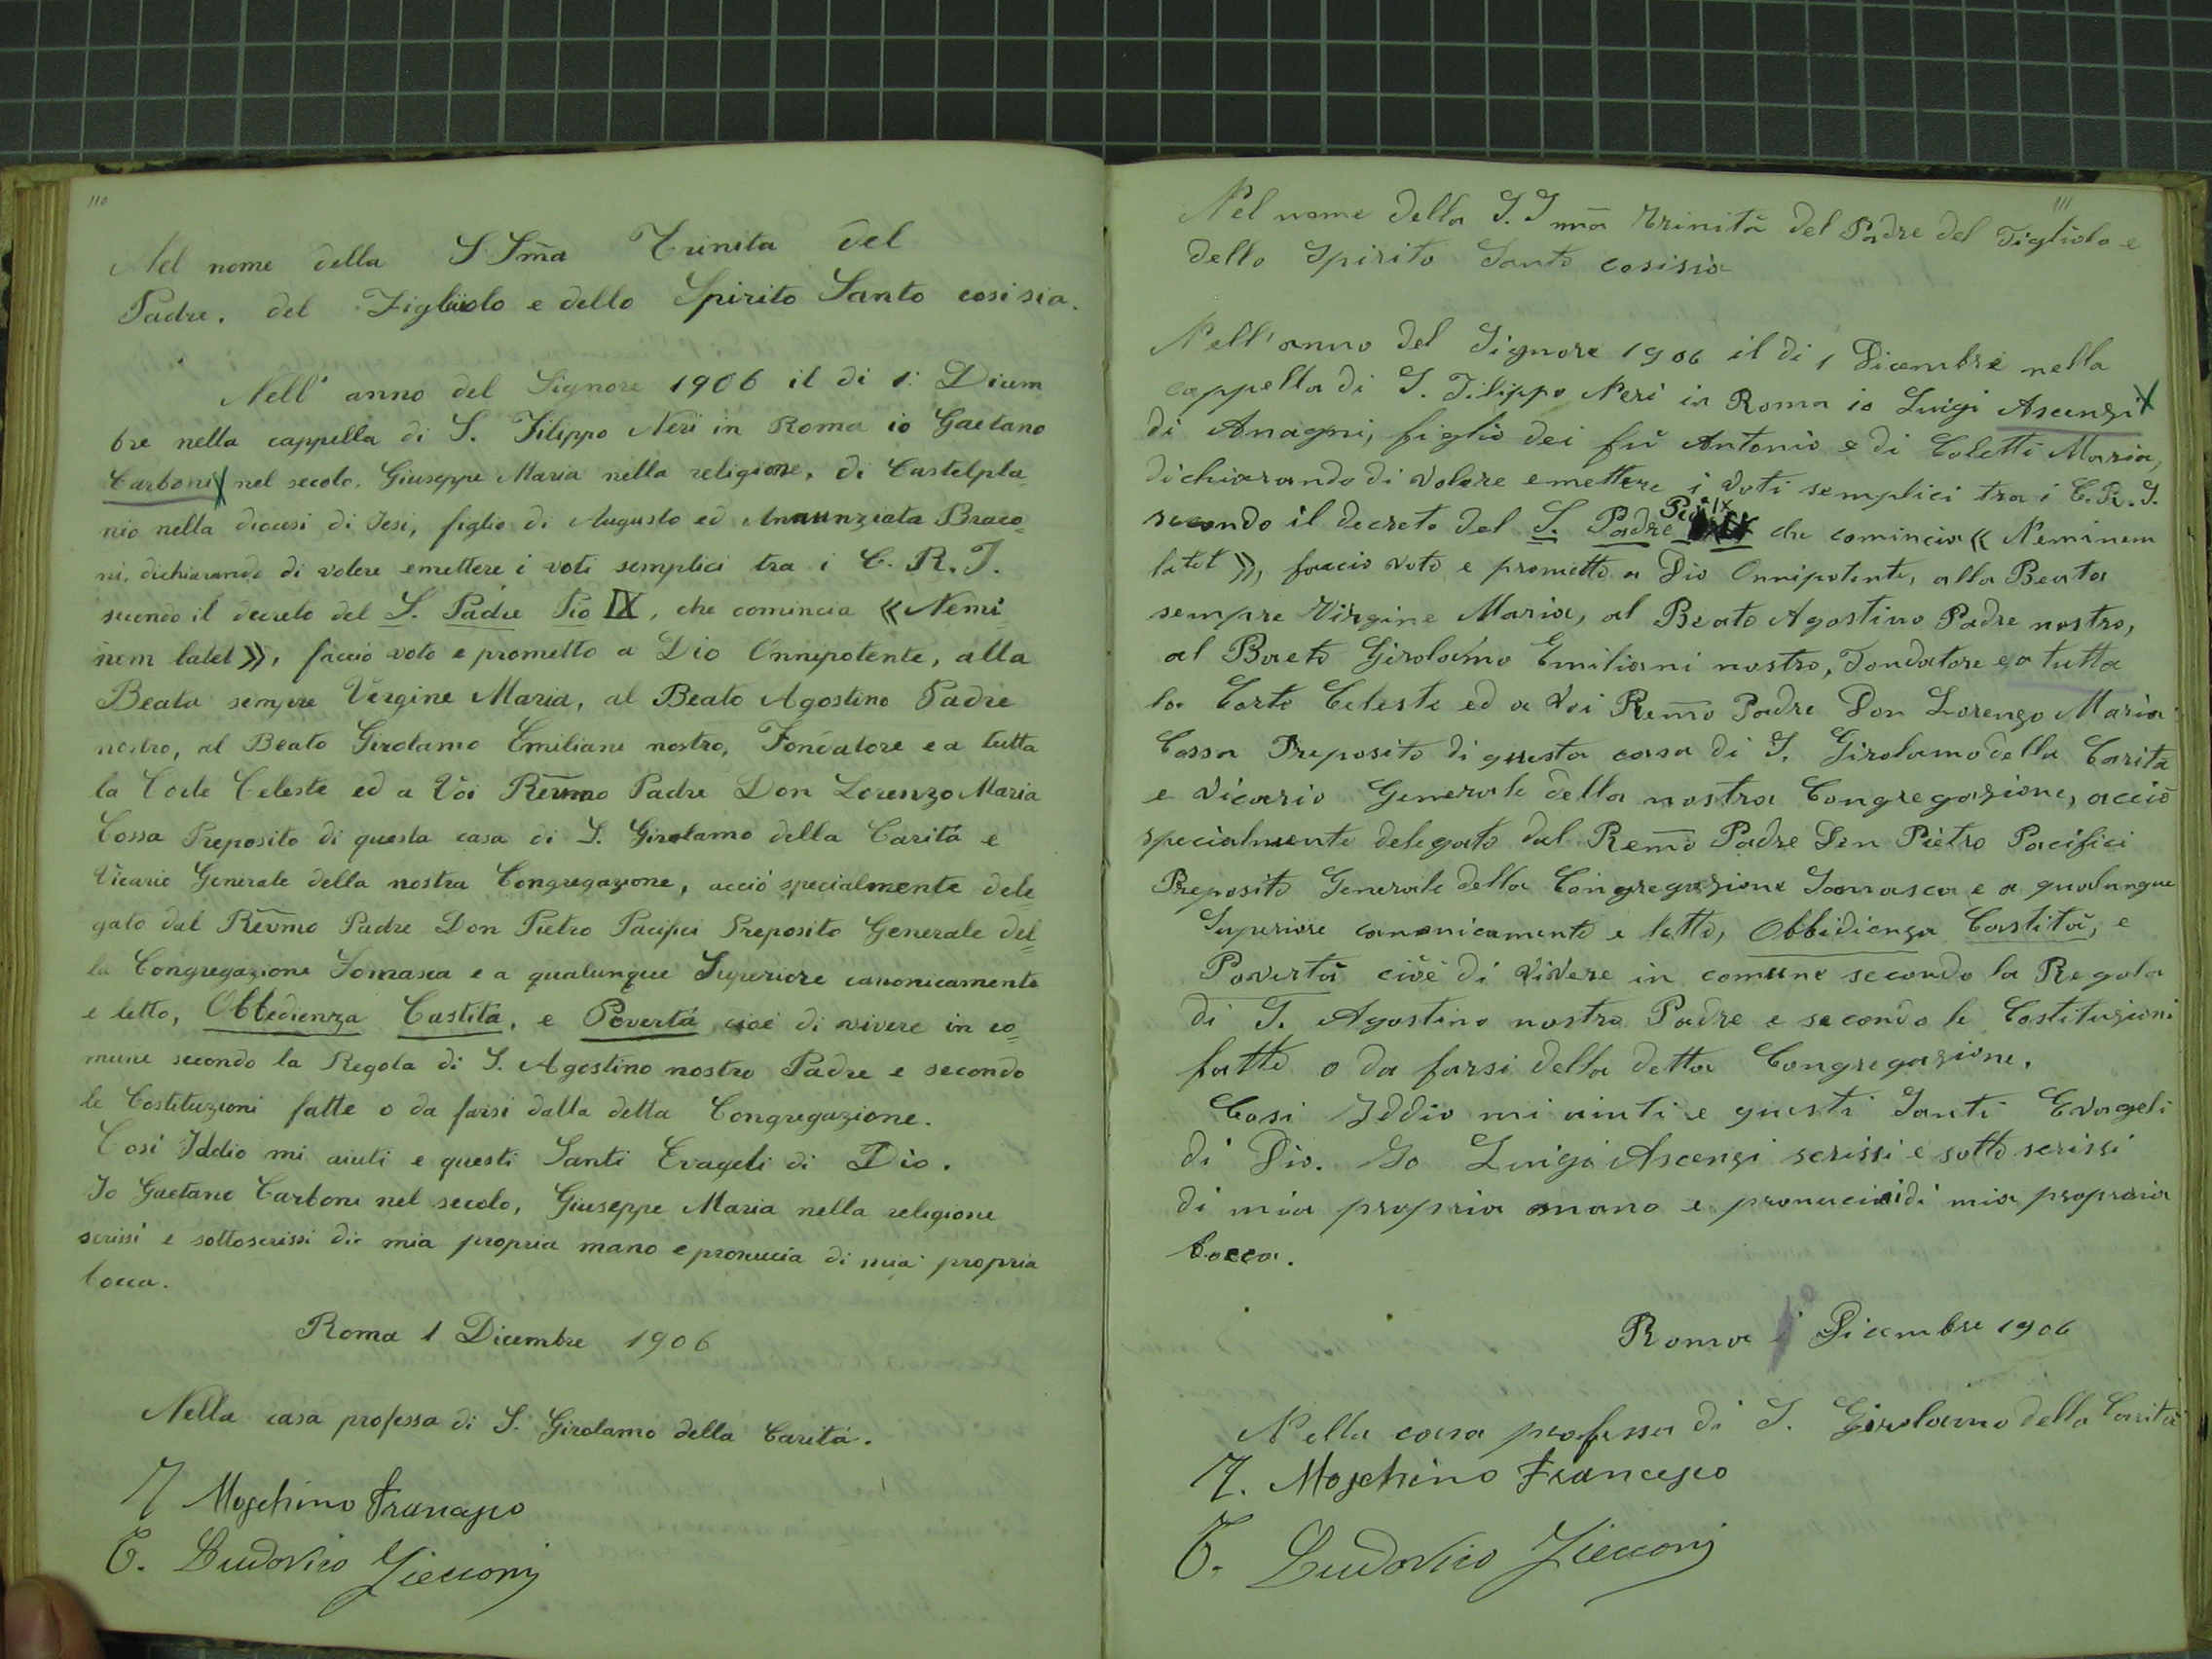 110
Nel nome della S Sm̃a Trinita del
Padre. del Figliuolo e dello Spirito Santo cosi sia.
Nell' anno del Signore 1906 il di 1: Dicem
bre nella cappella di S. Filippo Neri in Roma io Gaetano
Carboni nel secolo, Giuseppe Maria nella religione, di Castelpla
nio nella diocesi di Jesi, figlio di Augusto ed Annunziata Braco=
ni, dichiarando di volere emettere i voti semplici tra i C. R. S.
secondo il decreto del S. Padre Pio IX, che comincia « Nemi
nem latet », faccio voto e prometto a Dio Onnipotente, alla
Beata sempre Vergine Maria, al Beato Agostino Padre
nostro, al Beato Girolamo Emiliani nostro, Fondatore e a tutta
la Corte Celeste ed a Voi Rev̄mo Padre Don Lorenzo Maria
Cossa Preposito di questa casa di S. Girolamo della Carità e
Vicario Generale della nostra Congregazione, acciò specialmente dele=
gato dal Rev̄mo Padre Don Pietro Pacifici Preposito Generale del=
la Congregazione Somasca e a qualunque Superiore canonicamente
e letto, Obbedienza Castità, e Povertà cioè di vivere in co=
mune secondo la Regola di S. Agostino nostro Padre e secondo
le Costituzioni fatte o da farsi dalla detta Congregazione.
Cosi Iddio mi aiuti e questi Santi Evageli di Dio.
Io Gaetano Carboni nel secolo, Giuseppe Maria nella religione
scrissi e sottoscrissi di mia propria mano e pronucia di mia propria
bocca.
Roma 1 Dicembre 1906
Nella casa professa di S. Girolamo della Carità.
T Moschino Francesco
T. Ludovico Zicconi
111
Nel nome della S. S m̄a Trinità del Padre del Figliolo e
dello Spirito Santo cosisia
Nell'anno del Signore 1906 il di 1 Dicembre nella
cappella di S. Filippo Neri in Roma io Luigi Ascenzi
di Anagni, figlio dei fù Antonio e di Coletti Maria,
dichiarando di volere emettere i voti semplici tra i C. R. S.
secondo il decreto del S. Padre Pio IX che comincia « Neminem
latet », faccio voto e prometto a Dio Onnipotente, alla Beata
sempre Virgine Maria, al Beato Agostino Padre nostro,
al Baeto Girolamo Emiliani nostro, Fondatore e a tutta
la Corte Celeste ed a Voi Rem̄o Padre Don Lorenzo Maria
Cossa Preposito di questa casa di S. Girolamo della Carità
e Vicario Generale della nostra Congregazione, acciò
specialmente delegato dal Rem̄o Padre Don Pietro Pacifici
Preposito Generale della Congregazione Somasca e a qualunque
Superiore canonicamente e letto, Obbidienza Castità, e
Povertà cioè di vivere in comune secondo la Regola
di S. Agostino nostro Padre e secondo le Costituzioni
fatte o da farsi della detta Congregazione.
Cosi Iddio mi aiuti e questi Santi Evageli
di Dio. Io Luigi Ascenzi scrissi e sotto scrissi
di mia propria mano e pronuciai di mia propria
bocca.
Roma 1 Dicembre 1906
Nella casa professa di S. Girolamo della Carità
T. Moschino Francesco
T. Ludovico Zicconi